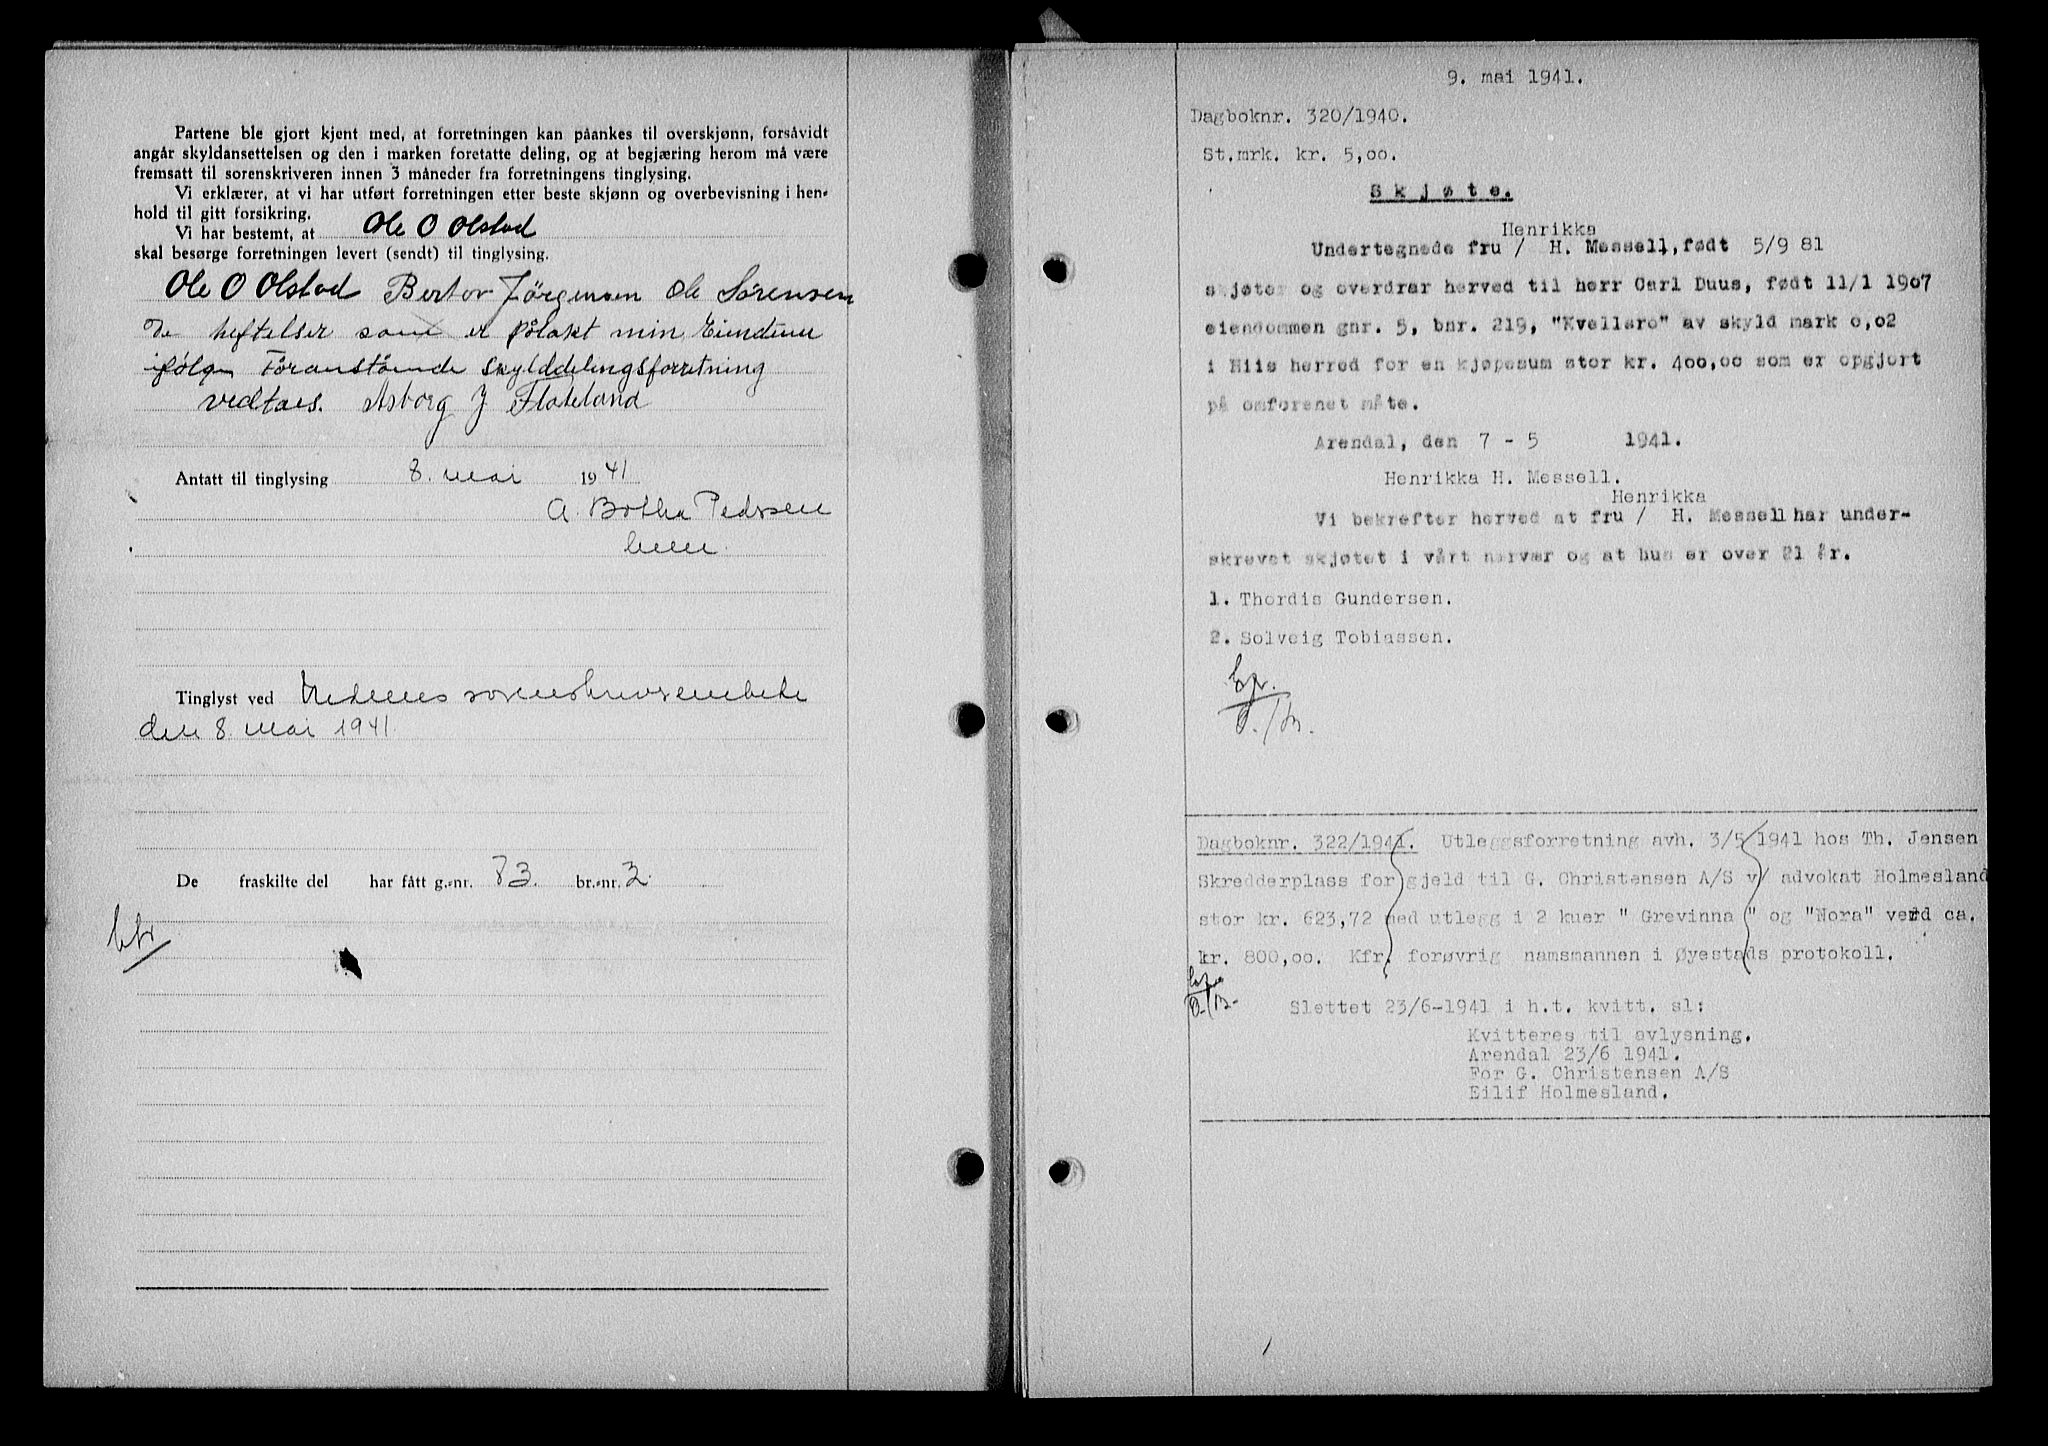 Partene ble gjort kjent med, at forretningen kan påankes til overskjønn, forsåvidt
angår skyldansettelsen og den i marken foretatte deling, og at begjæring herom må være
fremsatt til sorenskriveren innen 3 måneder fra forretningens tinglysing.
Vi erklærer, at vi har utført forretningen etter beste skjønn og overbevisning i hen-
hold til gitt forsikring.
Vi har bestemt, at Ole O Olstad
skal besørge forretningen levert (sendt) til tinglysing.
Ole O Olstad Bertov Jörgensen Ole Sörensen
De heftelser som er pålakt min Eiendum
ifølge Foranstående skylddelingsforretning
vedtaes. Asborg J Flateland
Antatt til tinglysing 8. mai 1941
A. Bothn Pedersen
Tinglyst ved Nedenes sorenskriverembete
den 8. mai 1941.
De fraskilte del har fått g.-nr. 83. br.-nr. 2.
9. mai 1941.
Dagboknr. 320/1940.
St.mrk. kr. 5,oo.
Skjøte.
Henrikka
Undertegnede fru / H. Messell, født 5/9 81
skjøter og overdrar herved til herr Carl Duus, født 11/1 1907
eiendommen gnr. 5, bnr. 219, "Kvellsro" av skyld mark o,o2
i Hiis herred for en kjøpesum stor kr. 400,oo som er opgjort
på omforenet måte.
Arendal, den 7 - 5 1941.
Henrikka H. Messell.
Henrikka
Vi bekrefter herved at fru / H. Messell har under-
skrevet skjøtet i vårt nærvær og at hun er over 21 år.
1. Thordis Gundersen.
2. Solveig Tobiassen.
Dagboknr. 322/1941. Utleggsforretning avh. 3/5 1941 hos Th. Jensen
Skredderplass for gjeld til G. Christensen A/S v/ advokat Holmesland
stor kr. 623,72 med utlegg i 2 kuer " Grevinna " og "Nora" verd ca.
kr. 800,oo. Kfr. forøvrig namsmannen i Øyestads protokoll.
Slettet 23/6-1941 i h.t. kvitt. sl:
Kvitteres til avlysning.
Arendal 23/6 1941.
For G. Christensen A/S
Eilif Holmesland.